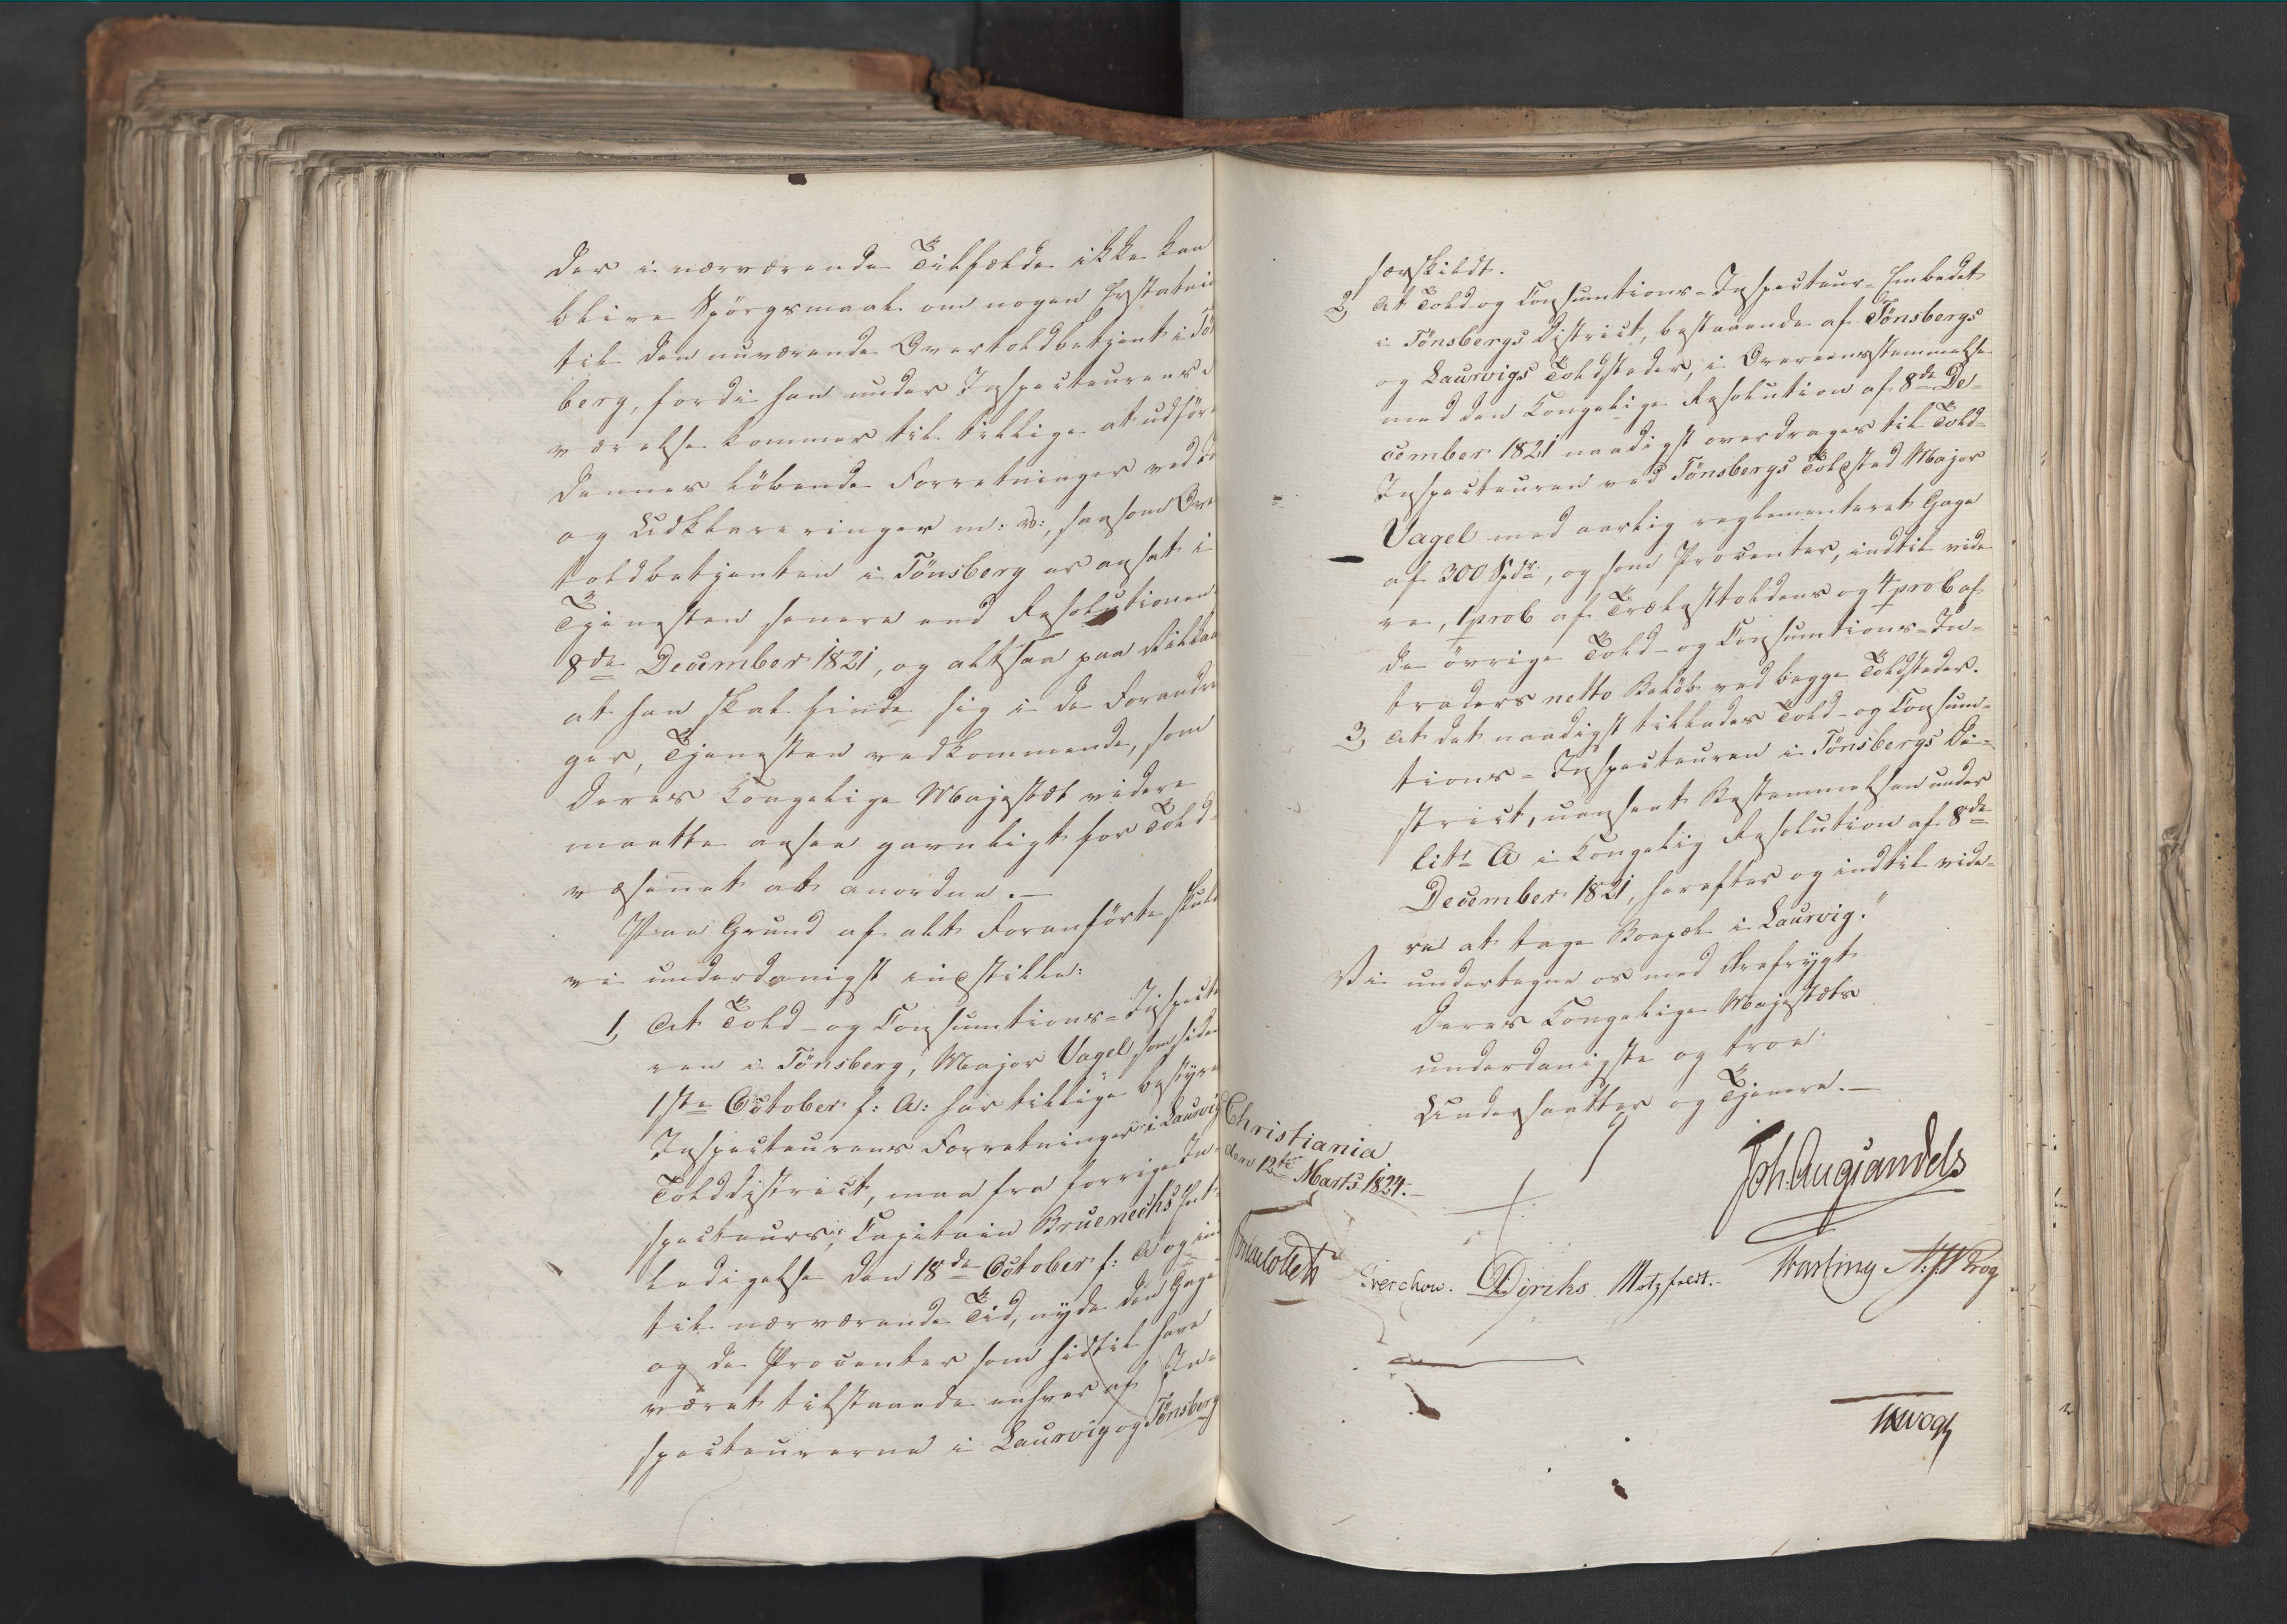 der i nærværende Tilfælde ikke kan
blive Spørgsmaal om nogen Erstatni
til den nuværende Overtoldbetjent i Tøn
berg, fordi han under Inspecteurens
værelse kommer til tillige at udføre
dennes løbende Forretninger ved
og Udklareringer m: v:, saasom Ove
toldbetjenten i Tønsberg er ansat i
Tjenesten senere end Resolutionen
8de December 1821, og altsaa paa Vilkaar
at han skal finde sig i de Forandrin
ger, Tjenesten vedkommende, som
Deres Kongelige Majestæt videre
maatte ansee gavnligt for Told-
væsenet at anordne.-
Paa Grund af alt Foranførte skulde
vi underdanigst indstille:
1, At Told- og Consumtions-Inspecteu
ren i Tønsberg, Major Vagel, som siden
1ste October f: A: har tillige bestyret
Inspecteurens Forretninger i Laurvigs
Tolddistrict, maa fra forrige In-
specteurs, Capitain Bruenechs Ent-
ledigelse den 18de October f: A og ind
til nærværende Tid, nyde den Gage
og de Procenter som hidtil have
været tilstaaede enhver af In-
specteurerne i Laurvig og Tønsberg
særskildt.
2, At Told og Consumtions-Inspecteur-Embedet
i Tønsbergs District, bestaaende af Tønsbergs
og Laurvigs Toldsteder, i Overeensstemmelse
med den Kongelige Resolution af 8de De-
cember 1821 naadigst overdrages til Told-
Inspecteuren ved Tønsbergs Toldsted Major
Vagel med aarlig reglementeret Gage
af 300 Spdr, og som Procenter, indtil vide
re, 1 proC af Trælasttolden og 4 proC af
de øvrige Told- og Consumtions-In-
traders netto Beløb ved begge Toldsteder.
3, At det naadigst tillades Told- og Consum-
tions-Inspecteuren i Tønsbergs Di-
strict, uanseet Bestemmelsen under
Litr A i Kongelig Resolution af 8de
December 1821, herefter og indtil vide-
re at tage Bopæl i Laurvig."
Vi undertegne os med Ærefrygt
Deres Kongelige Majestæts
underdanigste og troe
Undersaatter og Tjenere.-
Christiania
den 12te Marts 1824.-
Joh. Aug Sandels
Jonas Collett
Treschow. Diriks Motzfeldt.